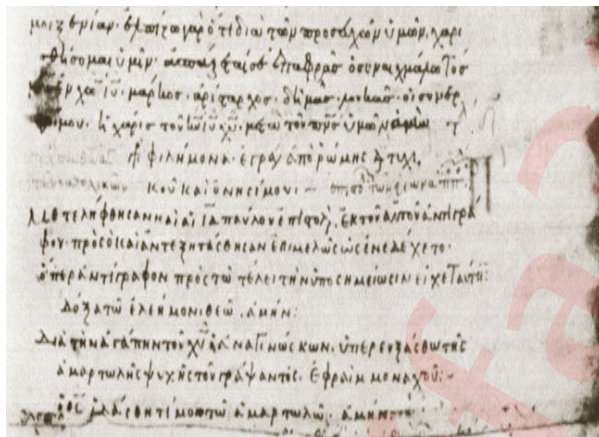 μοι ξενίαν· ἐλπίζω γὰρ ὅτι διὰ τῶν προσευχῶν ὑμῶν, χαρι
σθήσομαι ὑμῖν· ἀσπάζεταί σε ἐπαφρᾶς ὁ συναιχμάλωτός
ἐν χ̅ω̅ ι̅υ̅· μάρκος· ἀρίσταρχος· δημᾶς· λουκᾶς· οἱ συνερ
μου· ἡ χάρις τοῦ κ̅υ̅ ι̅υ̅ χ̅υ̅, μετὰ τοῦ π̅ν̅ς̅ ὑμῶν ἀμήν
φιλήμονα· ἐγράφη ἀπὸ ῥώμης διὰ τυχι
κοῦ καὶ ὀνησίμου:~
φθησαν καὶ αἱ ι̅δ̅ παύλου ἐπιστολ, ἐκ τοῦ αὐτοῦ ἀντιγρά
φου· πρὸς ὃ καὶ ἀντεξητάσθησαν ἐπιμελῶς ὡς ἐνεδέχετο·
ὅπερ ἀντίγραφον πρὸς τῶ τέλει τὴν ὑποσημείωσιν εἶχε ταύτην:
δόξα τῶ ἐλεήμονι θεῶ. ἀμήν:
διὰ τὴν ἀγάπην τοῦ χ̅υ̅ ὁ ἀναγινώσκων, ὑπερευξάσθω τῆς
ἁμαρτωλῆς ψυχῆς τοῦ γράψαντος. ἐφραὶμ μοναχοῦ:~
ὁ θ̅ς̅ ἱλάσθητί μοι τῶ ἁμαρτωλῶ. ἀμήν